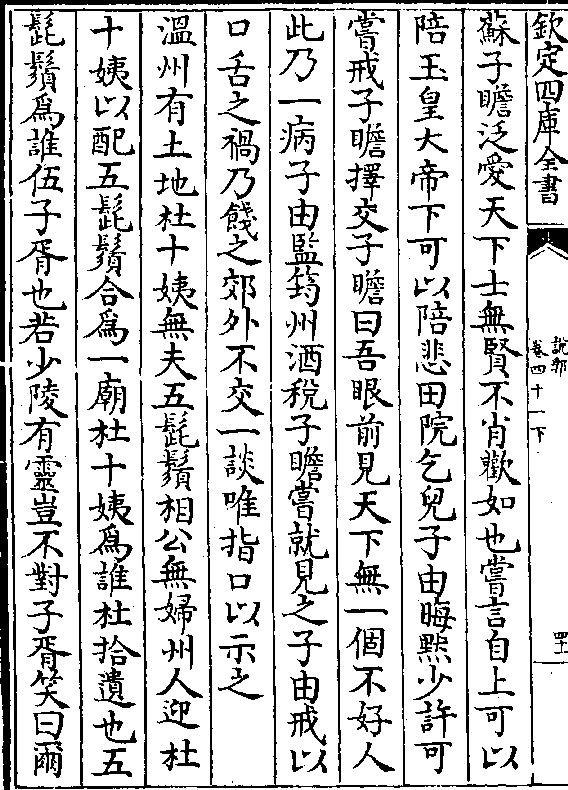 欽定四庫全書
說郛
卷四十一下
蘇子瞻泛愛天下士無賢不肖歡如也嘗言自上可以
陪玉皇大帝下可以陪悲田院乞兒子由晦黙少許可
嘗戒子瞻擇交子瞻曰吾眼前見天下無一個不好人
此乃一病子由監筠州酒稅子瞻嘗就見之子由戒以
口舌之禍乃餞之郊外不交一談唯指口以示之
溫州有土地杜十姨無夫五髭鬚相公無婦州人迎杜
十姨以配五髭鬚合爲一廟杜十姨爲誰杜拾遺也五
髭鬚爲誰伍子胥也若少陵有靈豈不對子胥笑曰爾